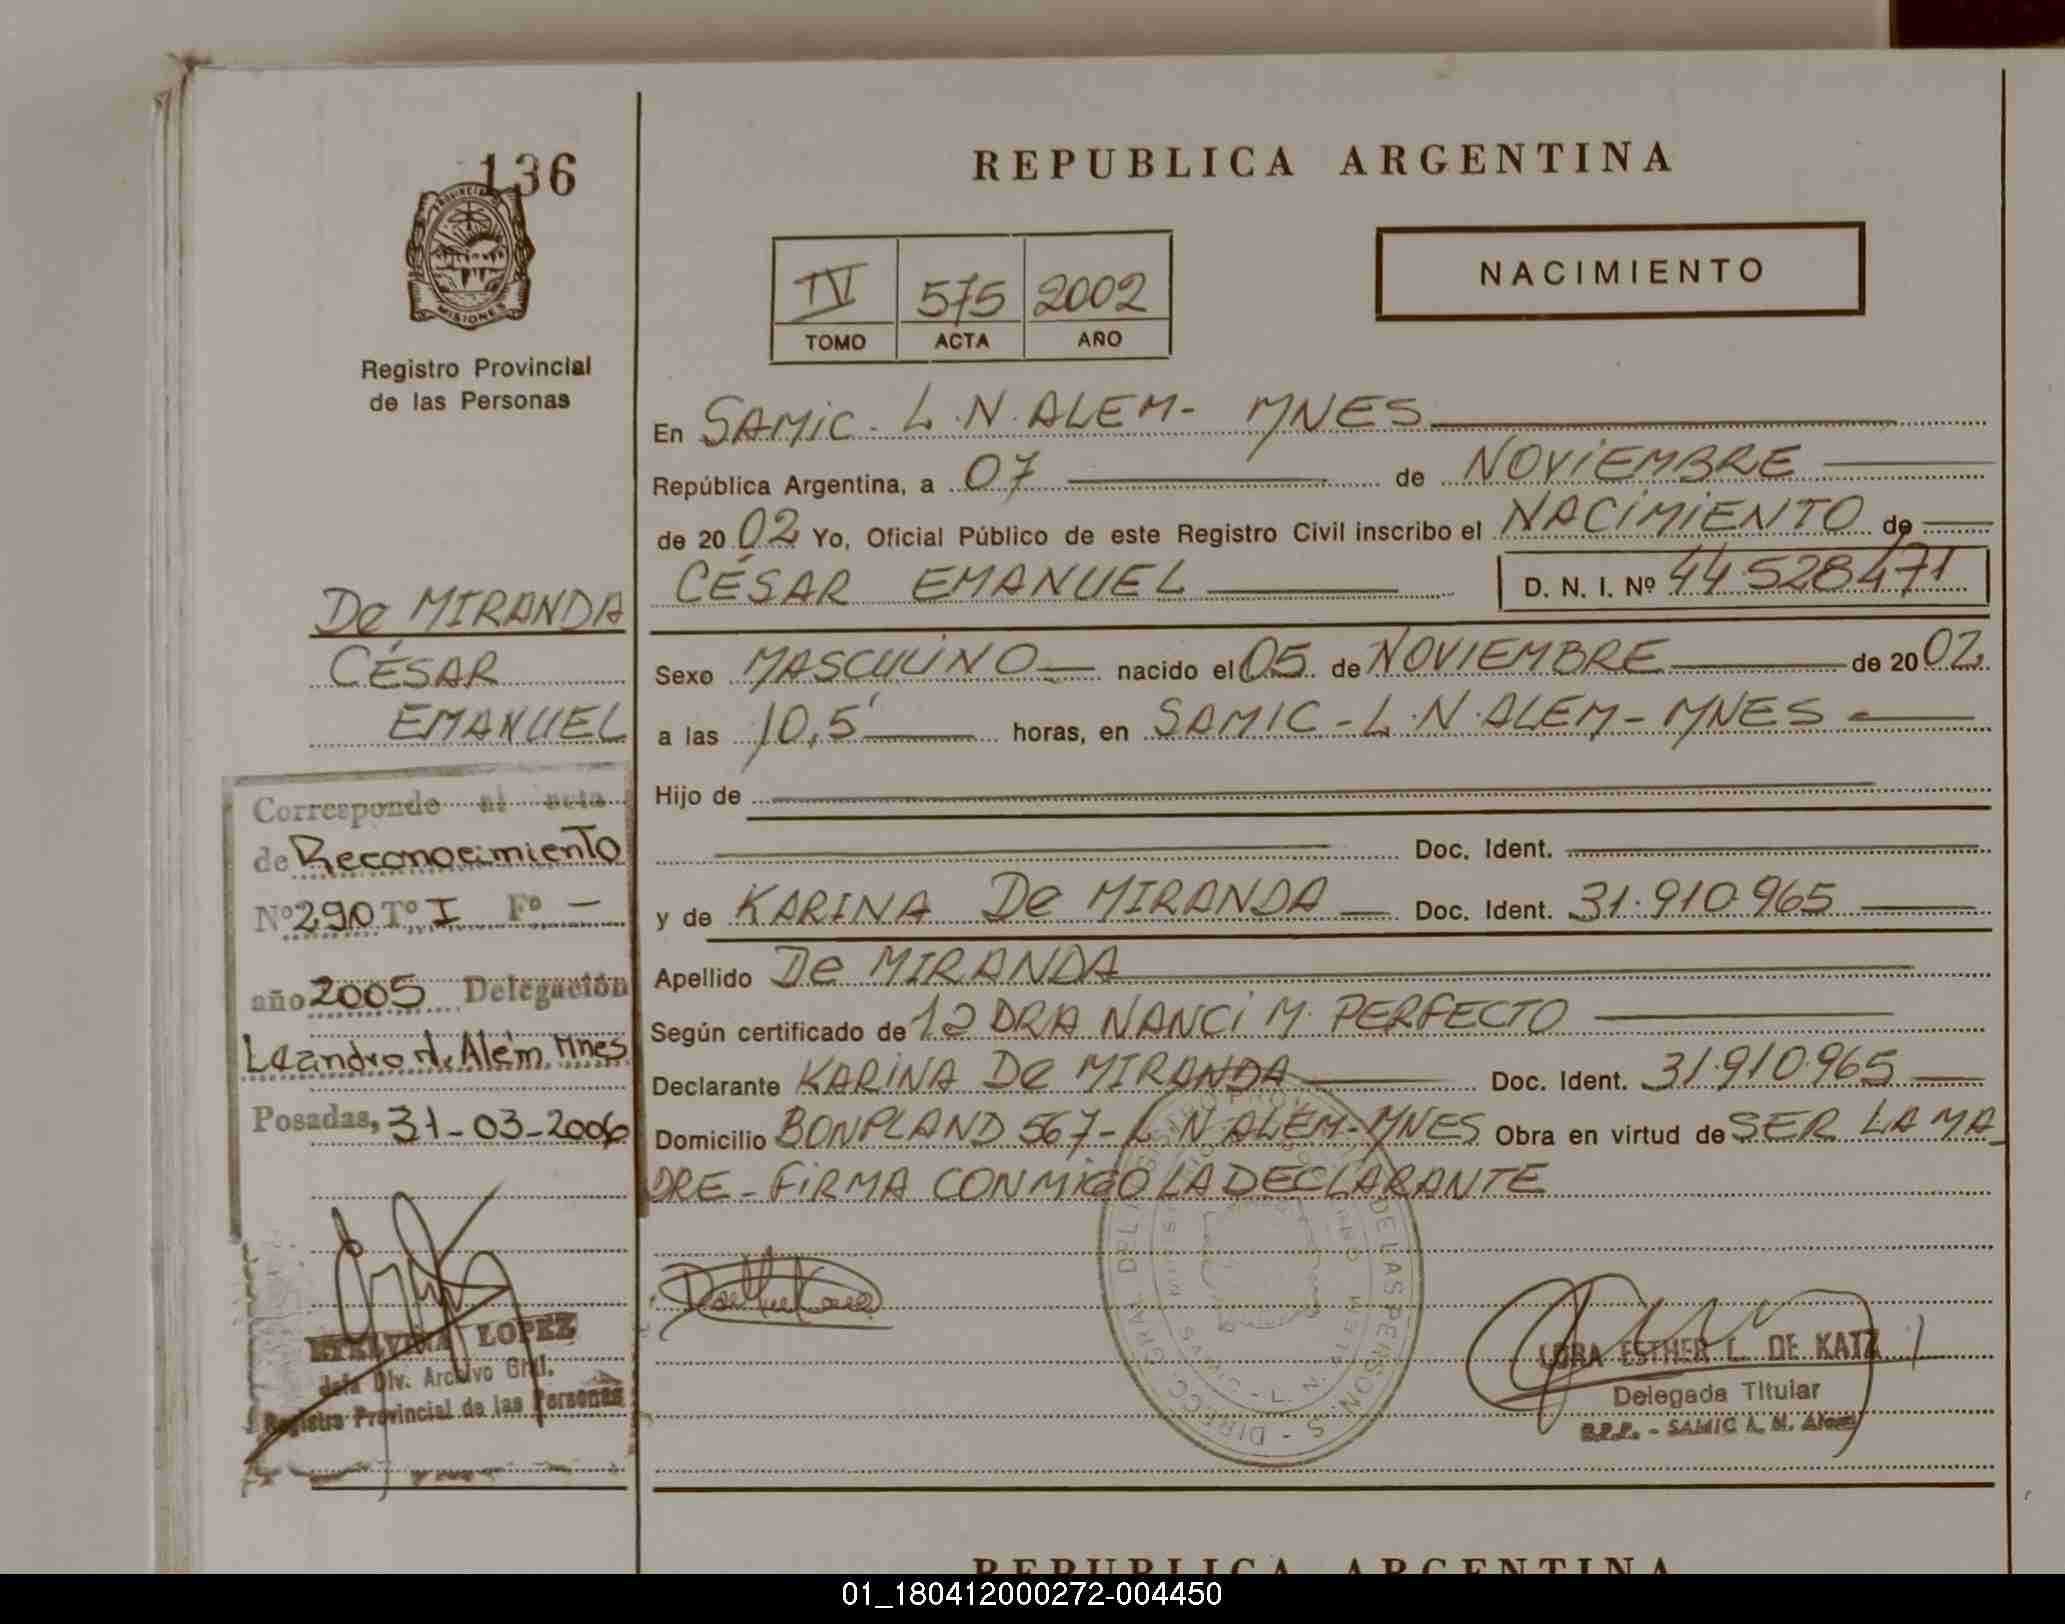 136
PROVINCIA DE
MISIONES
Registro Provincial
de las Personas
De MIRANDA
CÉSAR
EMANUEL
Corresponde al acta
de Reconocimiento
Nº 290 Tº I Fº —
año 2005 Delegación
Leandro N. Alem Mnes
Posadas, 31-03-2006
ETELVINA LOPEZ
Div. Archivo Gral.
Registro Provincial de las Personas
REPUBLICA ARGENTINA
IV 575 2002
TOMO ACTA AÑO
NACIMIENTO
En SAMIC - L.N. ALEM - MNES
República Argentina, a 07 de NOVIEMBRE
de 2002 Yo, Oficial Público de este Registro Civil inscribo el NACIMIENTO de
CÉSAR EMANUEL D. N. I. Nº 44.528471
Sexo MASCULINO nacido el 05 de NOVIEMBRE de 2002
a las 10,5' horas, en SAMIC - L.N. ALEM - MNES
Hijo de
Doc. Ident.
y de KARINA De MIRANDA Doc. Ident. 31.910.965
Apellido De MIRANDA
Según certificado de DRA NANCI M. PERFECTO
Declarante KARINA De MIRANDA Doc. Ident. 31.910.965
Domicilio BONPLAND 567 - L N ALEM - MNES Obra en virtud de SER LA MA
DRE - FIRMA CONMIGO LA DECLARANTE
DE LAS PERSONAS - DIRECC. GRAL.
ESTHER L. DE KATZ
Delegada Titular
SAMIC L. N. Alem
REPUBLICA ARGENTINA
01_180412000272-004450